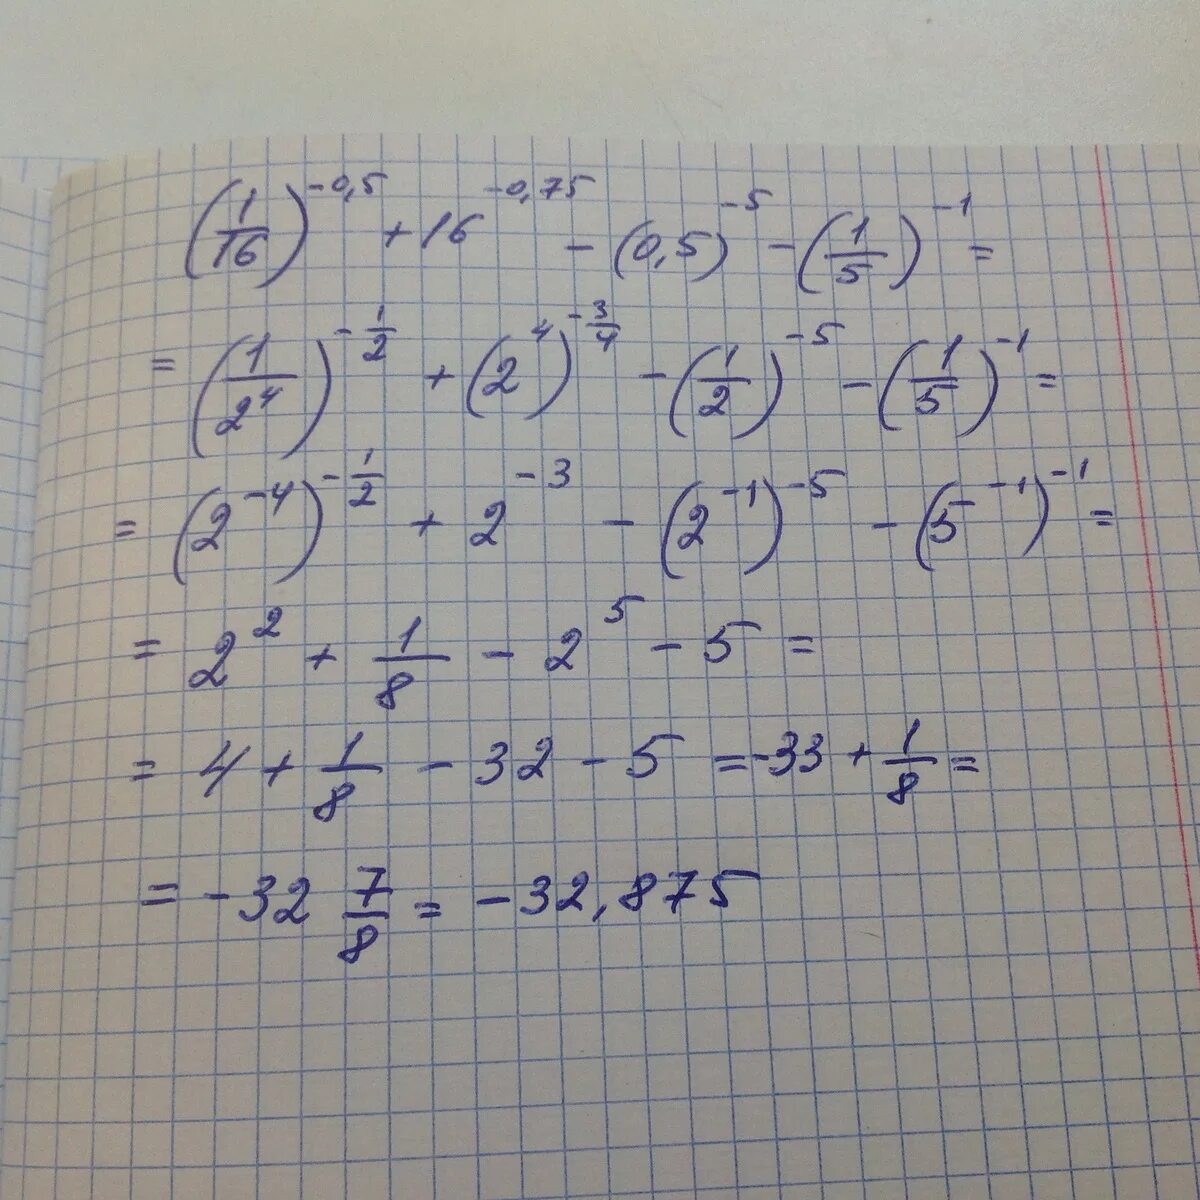 (1/16)^-0,5 + 16^-0,75 - (0,5)^-5 - (1/5)^-1 =
= (1/2^4)^-1/2 + (2^4)^-3/4 - (1/2)^-5 - (1/5)^-1 =
= (2^-4)^-1/2 + 2^-3 - (2^-1)^-5 - (5^-1)^-1 =
= 2^2 + 1/8 - 2^5 - 5 =
= 4 + 1/8 - 32 - 5 = -33 + 1/8 =
= -32 7/8 = -32,875